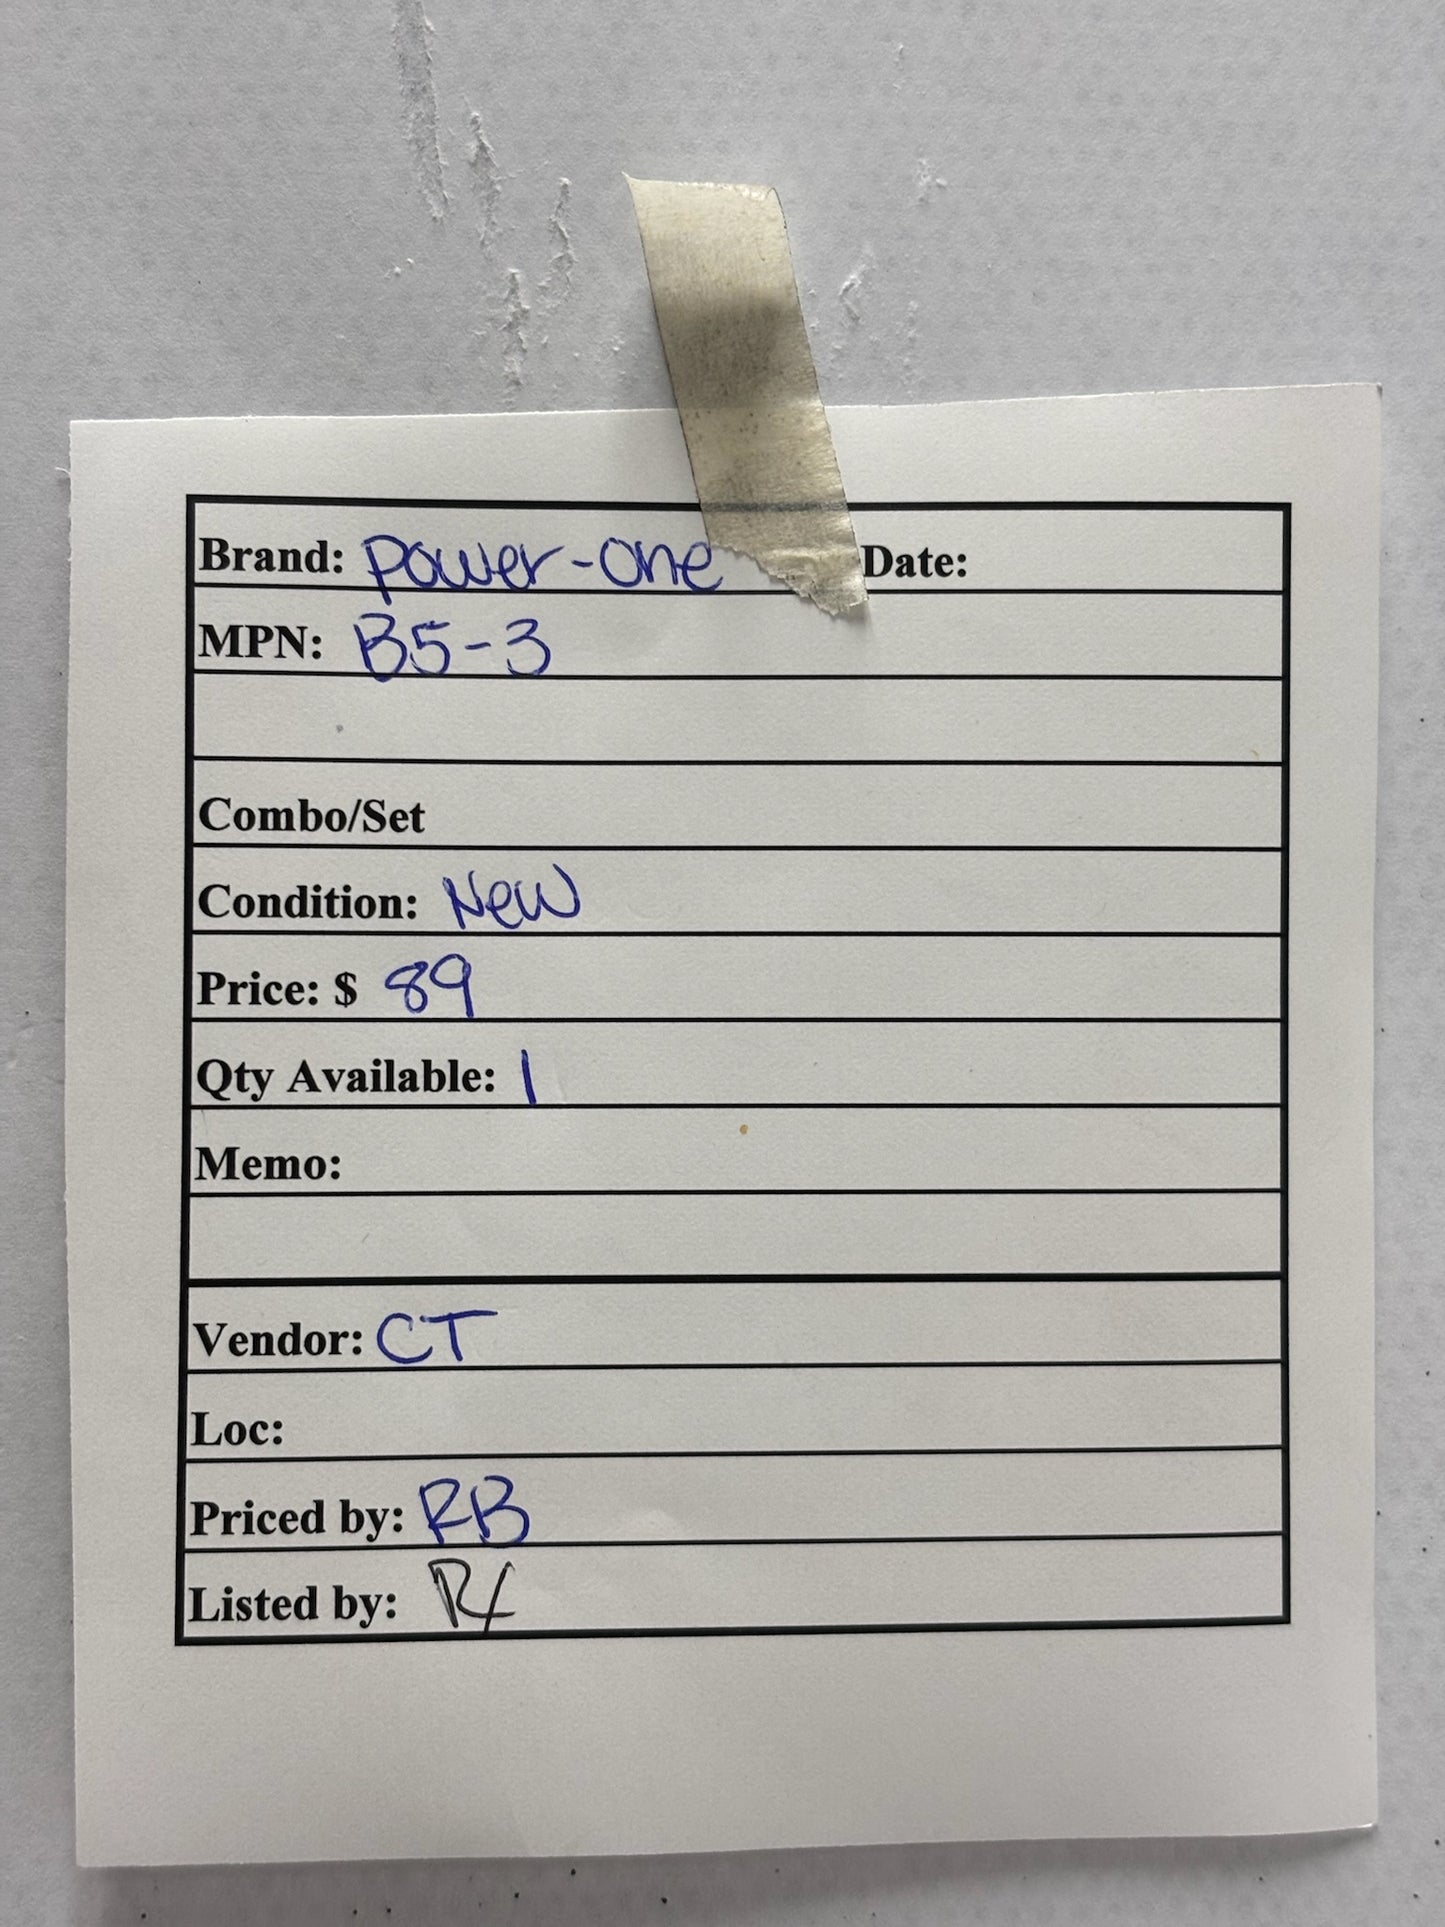 Brand: Power-One Date:
MPN: B5-3
Combo/Set
Condition: New
Price: $ 89
Qty Available: 1
Memo:
Vendor: CT
Loc:
Priced by: RB
Listed by: